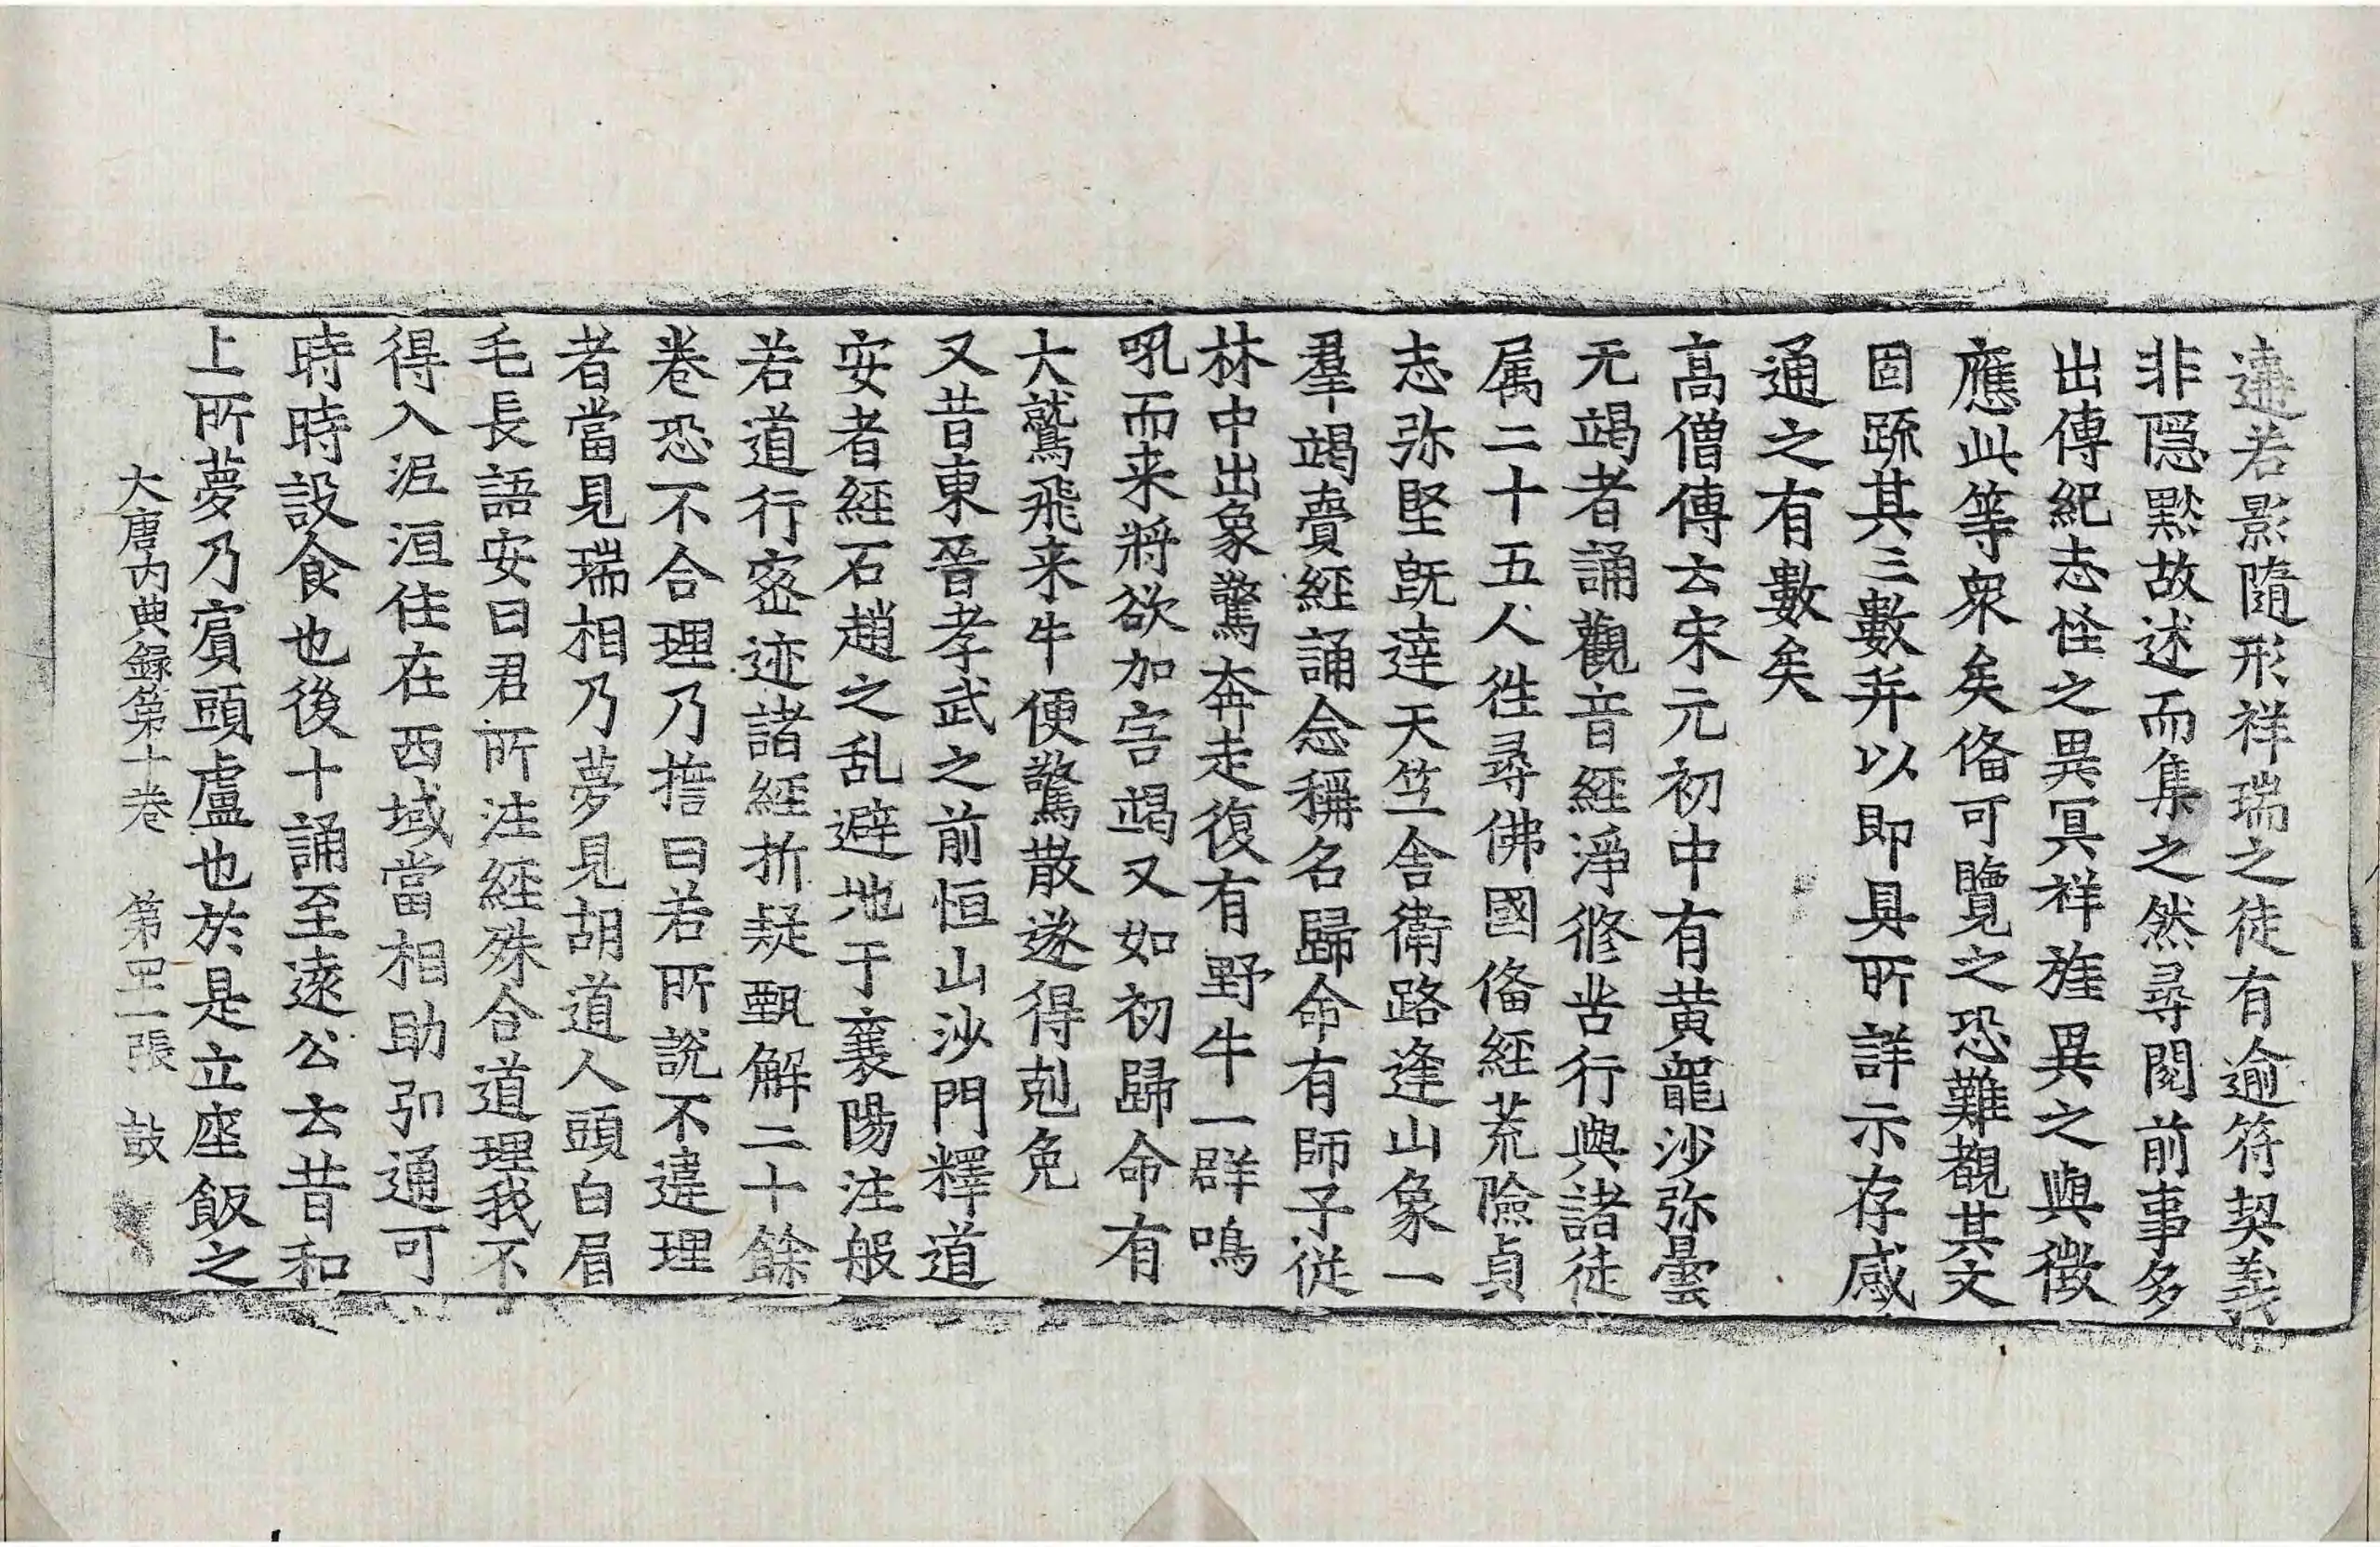 違若影隨形祥瑞之徒有逾符契義
非隱默故述而集之然尋閱前事多
出傳紀志怪之異冥祥旌異之與徵
應此等衆矣俻可覽之恐難觀其文
固䟽其三數并以即具所詳示存感
通之有數矣
高僧傳云宋元初中有黄龍沙弥曇
无竭者誦觀音經淨修苦行與諸徒
属二十五人往尋佛國俻經荒險貞
志弥堅旣達天竺舎衛路逢山象一
羣竭賷經誦念稱名歸命有師子従
林中出象驚奔走復有野牛一群鳴
吼而来將欲加害竭又如初歸命有
大鷲飛来牛便驚散遂得剋免
又昔東晉孝武之前恒山沙門釋道
安者經石趙之乱避地于襄陽注般
若道行密迹諸經析疑甄解二十餘
卷恐不合理乃擔曰若所說不違理
者當見瑞相乃夢見胡道人頭白眉
毛長語安曰君所注經殊合道理我不
得入泥洹住在西域當相助弘通可
時時設食也後十誦至遠公云昔和
上所夢乃賔頭盧也於是立座飯之
大唐内典録第十卷　第四一張　鼓